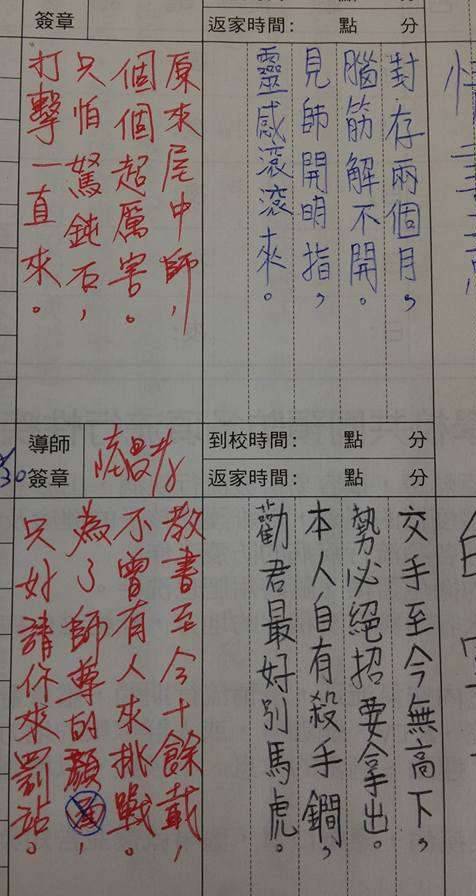 簽章
返家時間： 點 分
封存兩個月，
腦筋解不開。
見師開明指，
靈感滾滾來。
原來尾中師，
個個超厲害。
只怕駑鈍石，
打擊一直來。
導師
簽章
到校時間： 點 分
返家時間： 點 分
30
交手至今無高下，
勢必絕招要拿出。
本人自有殺手鐧，
勸君最好別馬虎。
教書至今十餘載，
不曾有人來挑戰。
為了師尊的顏
只好請你來罰站。